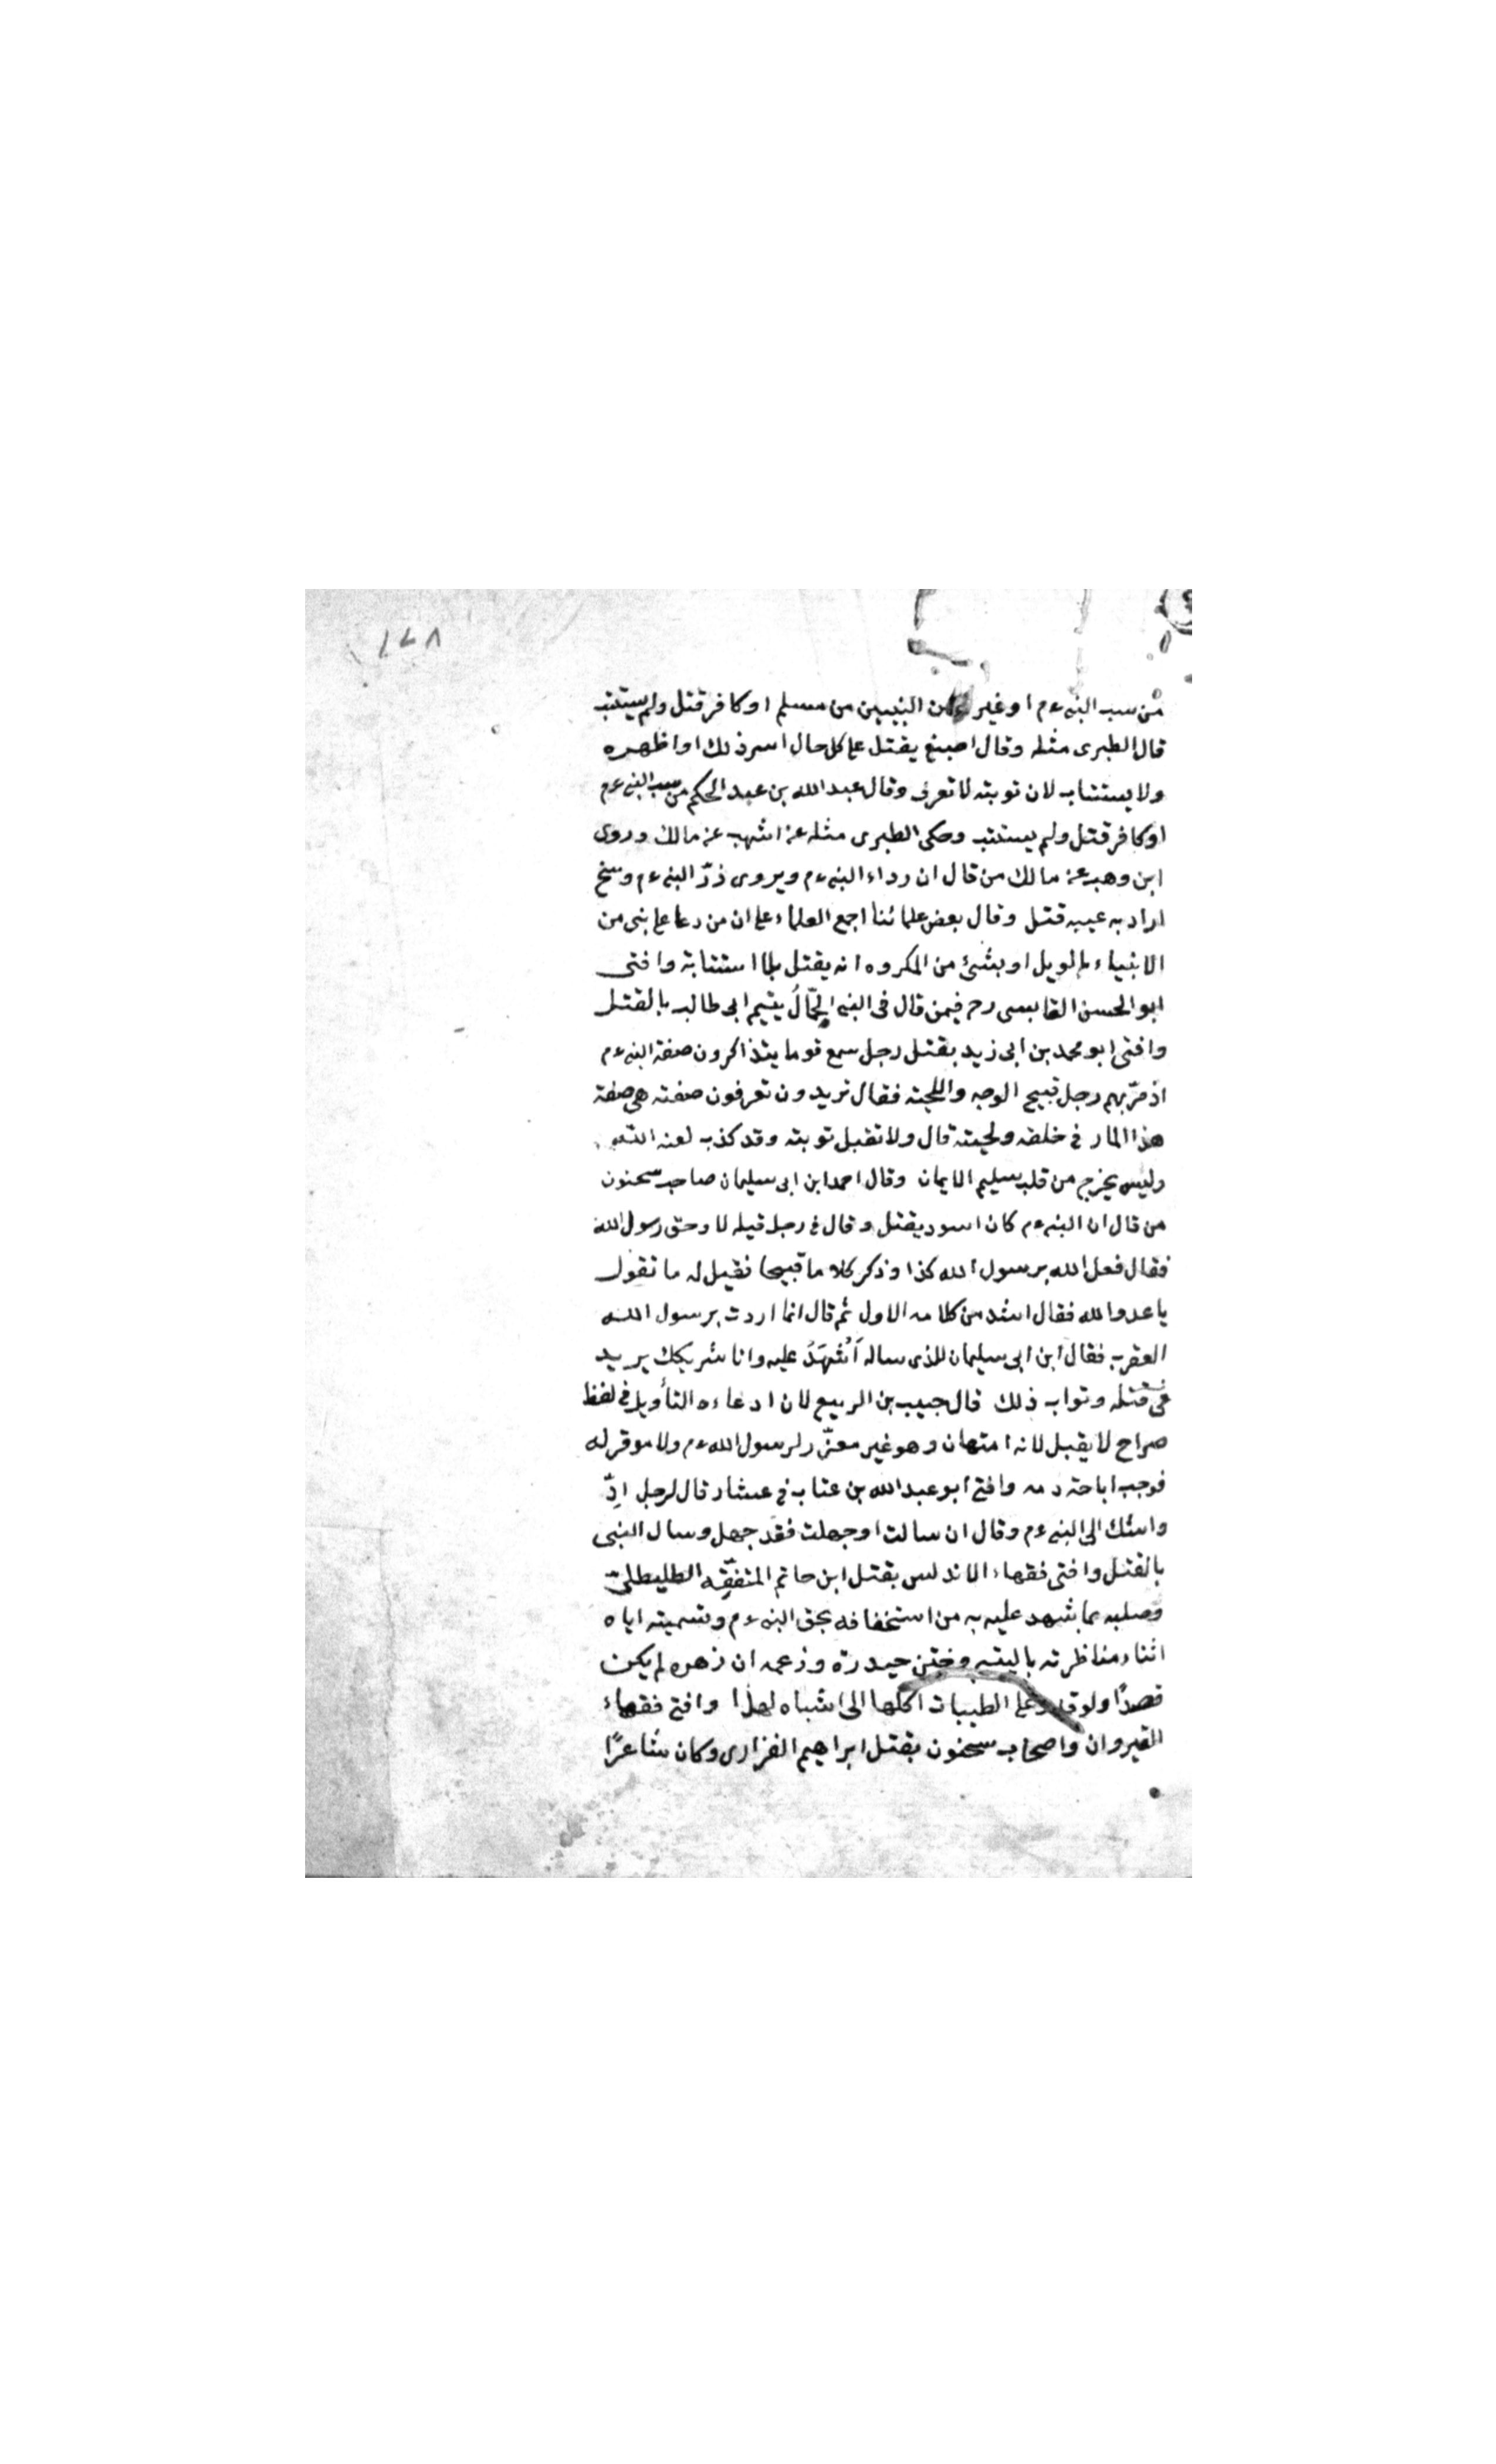 ١٤٨
من سب النبى ءم او غيره من النبيين من مسلم او كافر قتل ولم يستتب
قال الطبرى مثله وقال اصبغ يقتل على كل حال اسر ذلك او اظهره
ولا يستتاب لان توبته لا تعرف وقال عبد الله بن عبد الحكم من سب النبى ءم
او كافر قتل ولم يستتب وحكى الطبرى مثله عن اشهب عن مالك وروى
ابن وهب عن مالك من قال ان رداء النبى ءم ويروى زرّ النبى ءم وسخ
اراد به عيبه قتل وقال بعض علمائنا اجمع العلماء على ان من دعا على نبى من
الانبياء بالويل او بشئ من المكروه انه يقتل بلا استتابة وافتى
ابو الحسن القابسى رح فيمن قال فى النبى الجمّالُ يتيم ابى طالب بالقتل
وافتى ابو محمد بن ابى زيد بقتل رجل سمع قوما يتذاكرون صفة النبى ءم
اذ مرّ بهم رجل قبيح الوجه واللحية فقال تريدون تعرفون صفته هى صفة
هذا المار فى خلقه ولحيته قال ولا تقبل توبته وقد كذب لعنه الله
وليس يخرج من قلب سليم الايمان وقال احمد ابن ابى سليمان صاحب سحنون
من قال ان النبى ءم كان اسود يقتل وقال فى رجل قيل له لا وحق رسول الله
فقال فعل الله برسول الله كذا وذكر كلاما قبيحا فقيل له ما تقول
يا عدو الله فقال اشد من كلامه الاول ثم قال انما اردت برسول الله
العقرب فقال ابن ابى سليمان للذى ساله اَشْهَدُ عليه وانا شريكك يريد
فى قتله وثواب ذلك قال حبيب بن الربيع لان ادعاءه التأويل فى لفظ
صراح لا يقبل لانه امتهان وهو غير معزّر لرسول الله ءم ولا موقر له
فوجب اباحة دمه وافتى ابو عبد الله بن عتاب فى عشار قال لرجل ادِّ
واشك الى النبى ءم وقال ان سالت او جهلت فقد جهل وسال النبى
بالقتل وافتى فقهاء الاندلس بقتل ابن حاتم المتفقّه الطليطلى
وصلبه بما شهد عليه به من استخفافه بحق النبى ءم وتسميته اياه
اثناء مناظرته باليتيم وختن حيدرة وزعمه ان زهده لم يكن
قصدًا ولو قدر على الطيبات اكلها الى اشباه لهذا وافتى فقهاء
القيروان واصحاب سحنون بقتل ابراهيم الفزارى وكان شاعرًا